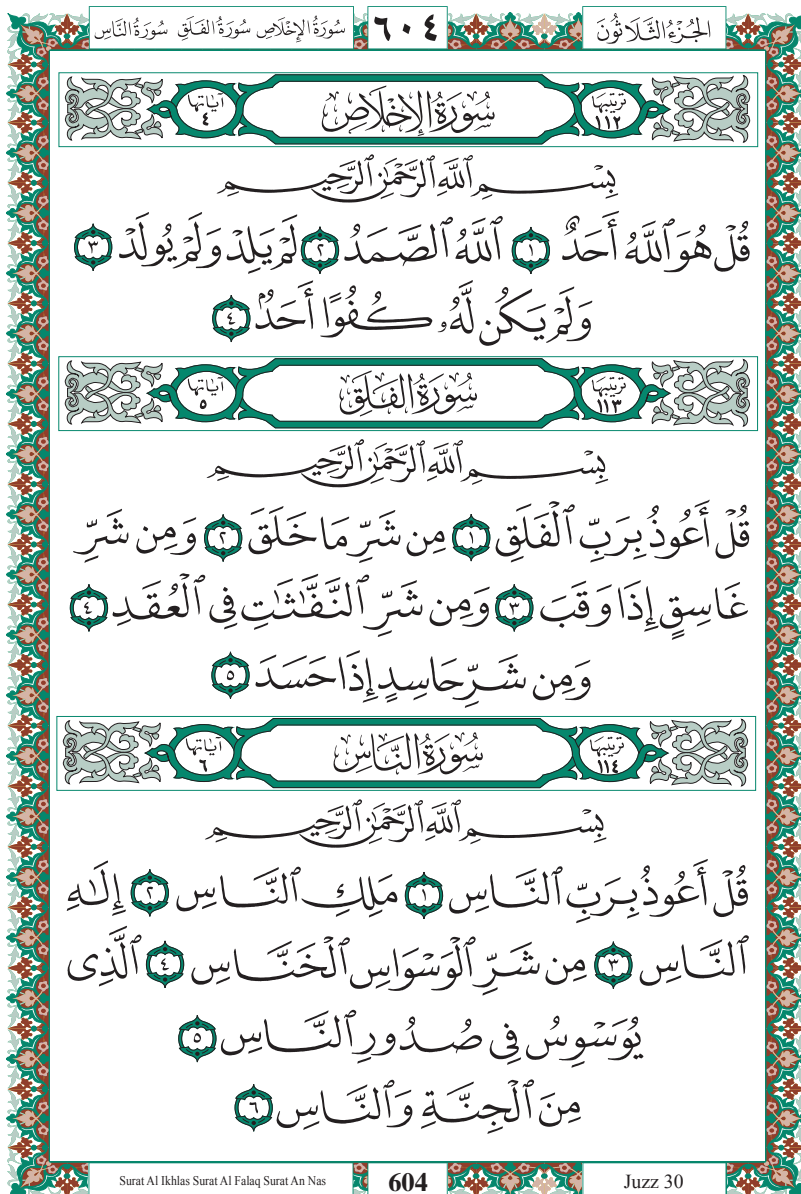 سُورَةُ الإِخْلَاصِ سُورَةُ الفَلَقِ سُورَةُ النَّاسِ ٦٠٤ الجُزْءُ الثَّلَاثُونَ
ترتيبها ١١٢ سُورَةُ الإِخْلَاصِ آياتها ٤
بِسْمِ ٱللَّهِ ٱلرَّحْمَٰنِ ٱلرَّحِيمِ
قُلْ هُوَ ٱللَّهُ أَحَدٌ ١ ٱللَّهُ ٱلصَّمَدُ ٢ لَمْ يَلِدْ وَلَمْ يُولَدْ ٣
وَلَمْ يَكُن لَّهُۥ كُفُوًا أَحَدٌۢ ٤
ترتيبها ١١٣ سُورَةُ الفَلَقِ آياتها ٥
بِسْمِ ٱللَّهِ ٱلرَّحْمَٰنِ ٱلرَّحِيمِ
قُلْ أَعُوذُ بِرَبِّ ٱلْفَلَقِ ١ مِن شَرِّ مَا خَلَقَ ٢ وَمِن شَرِّ
غَاسِقٍ إِذَا وَقَبَ ٣ وَمِن شَرِّ ٱلنَّفَّٰثَٰتِ فِى ٱلْعُقَدِ ٤
وَمِن شَرِّ حَاسِدٍ إِذَا حَسَدَ ٥
ترتيبها ١١٤ سُورَةُ النَّاسِ آياتها ٦
بِسْمِ ٱللَّهِ ٱلرَّحْمَٰنِ ٱلرَّحِيمِ
قُلْ أَعُوذُ بِرَبِّ ٱلنَّاسِ ١ مَلِكِ ٱلنَّاسِ ٢ إِلَٰهِ
ٱلنَّاسِ ٣ مِن شَرِّ ٱلْوَسْوَاسِ ٱلْخَنَّاسِ ٤ ٱلَّذِى
يُوَسْوِسُ فِى صُدُورِ ٱلنَّاسِ ٥
مِنَ ٱلْجِنَّةِ وَٱلنَّاسِ ٦
Surat Al Ikhlas Surat Al Falaq Surat An Nas 604 Juzz 30